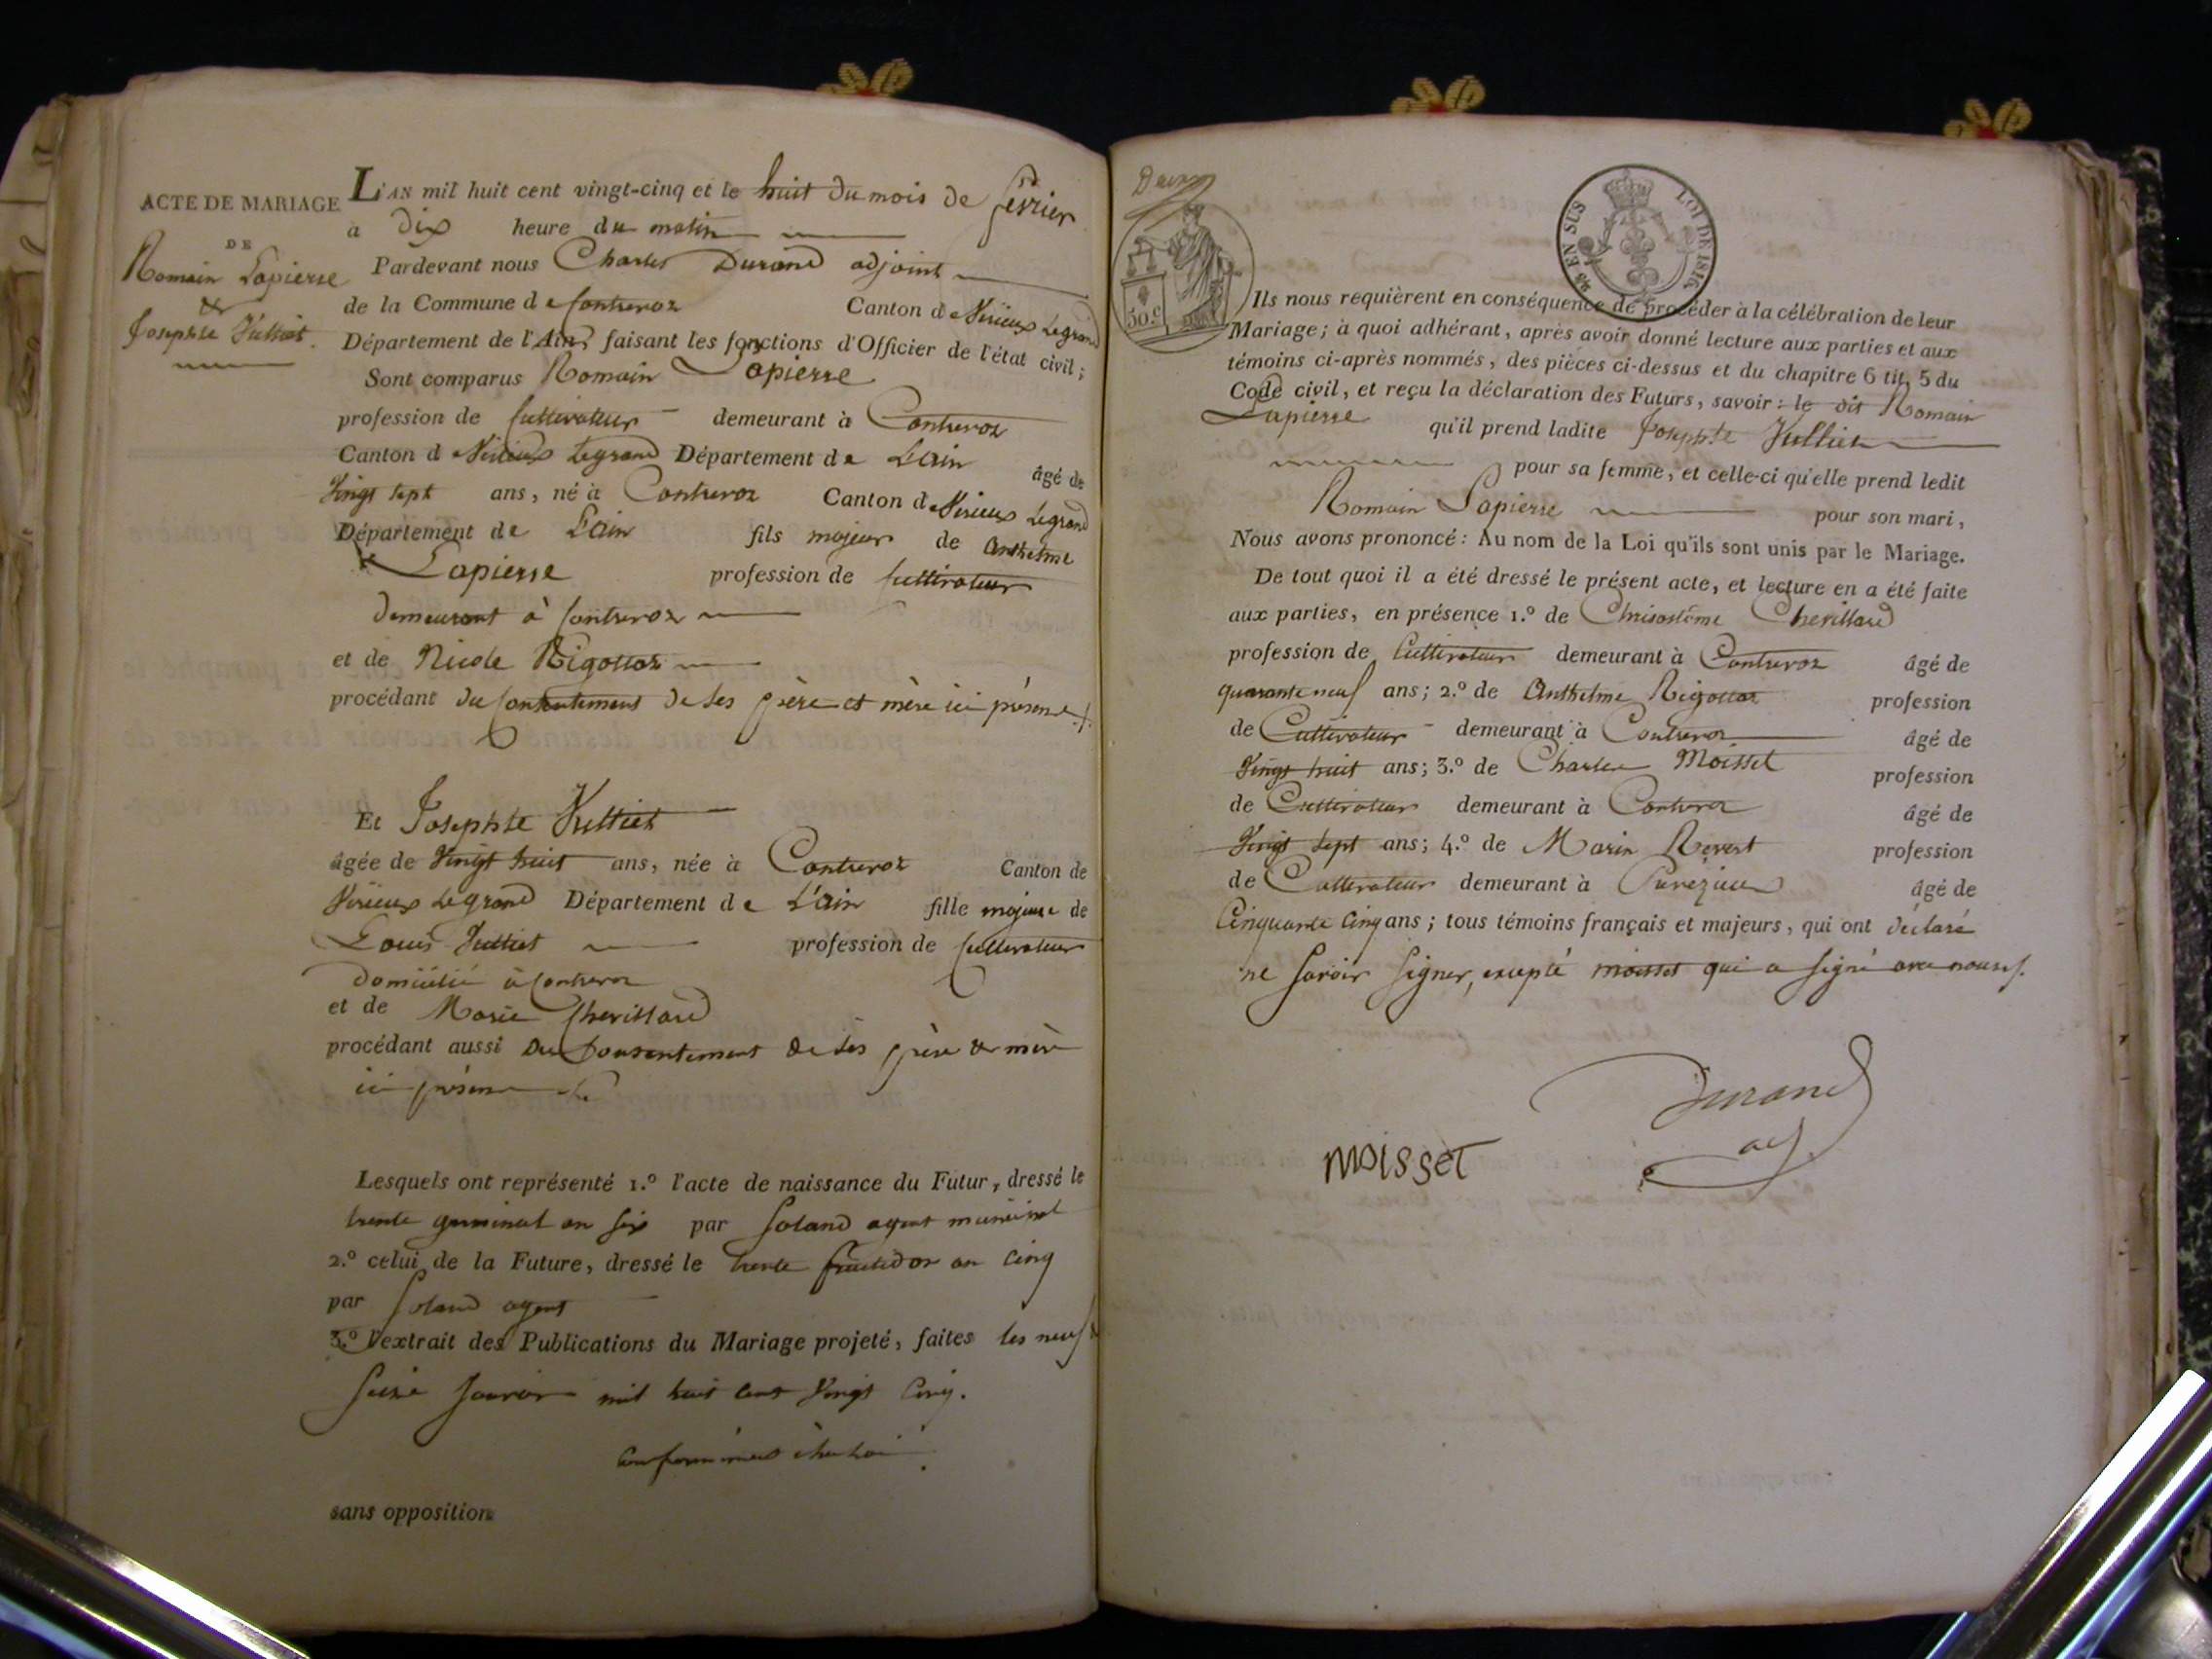 ACTE DE MARIAGE
DE
Romain Lapierre
&
Josephte Vulliet.
L'AN mil huit cent vingt-cinq et le huit du mois de fevrier
a dix heure du matin
Pardevant nous Charles Durand adjoint
de la Commune de Contrevoz Canton de Virieux Legrand
Département de l'Ain, faisant les fonctions d'Officier de l'état civil;
Sont comparus Romain Lapierre
profession de Cultivateur demeurant à Contrevoz
Canton d Virieux Legrand Département de L'ain âgé de
Vingt sept ans, né à Contrevoz Canton de Virieux Legrand
Département de L'ain fils majeur de Anthelme
Lapierre profession de Cultivateur
demeurant à Contrevoz
et de Nicole Rigottaz
procédant du Consentement de ses père et mère ici présens
Et Josephte Vulliet
âgée de Vingt huit ans, née à Contrevoz Canton de
Virieux Legrand Département de L'ain fille majeure de
Louis Vulliet profession de Cultivateur
domicilié à Contrevoz
et de Marie Cherillard
procédant aussi du Consentement de ses père & mère
ici présens
Lesquels ont représenté 1.º l'acte de naissance du Futur, dressé le
trente germinal an six par Soland agent municipal
2.º celui de la Future, dressé le trente fructidor an cinq
par Soland agent
3.º l'extrait des Publications du Mariage projeté, faites les neuf &
Seize Janvier mil huit cent Vingt Cinq.
sans opposition
50.c
EN SUS LOI DE 1816
Ils nous requièrent en conséquence de procéder à la célébration de leur
Mariage; à quoi adhérant, après avoir donné lecture aux parties et aux
témoins ci-après nommés, des pièces ci-dessus et du chapitre 6 tit. 5 du
Code civil, et reçu la déclaration des Futurs, savoir: le dit Romain
Lapierre qu'il prend ladite Josephte Vulliet
pour sa femme, et celle-ci qu'elle prend ledit
Romain Lapierre pour son mari,
Nous avons prononcé: Au nom de la Loi qu'ils sont unis par le Mariage.
De tout quoi il a été dressé le présent acte, et lecture en a été faite
aux parties, en présence 1.º de Chrisostôme Cherillard
profession de Cultivateur demeurant à Contrevoz âgé de
quarante neuf ans; 2.º de Anthelme Rigottaz profession
de Cultivateur demeurant à Contrevoz âgé de
Vingt huit ans; 3.º de Charles Moisset profession
de Cultivateur demeurant à Contrevoz âgé de
Vingt sept ans; 4.º de Marin Revert profession
de Cultivateur demeurant à âgé de
Cinquante Cinq ans; tous témoins français et majeurs, qui ont déclaré
ne Savoir Signer, excepté moisset qui a signé avec nous
Durand
adj.
moisset